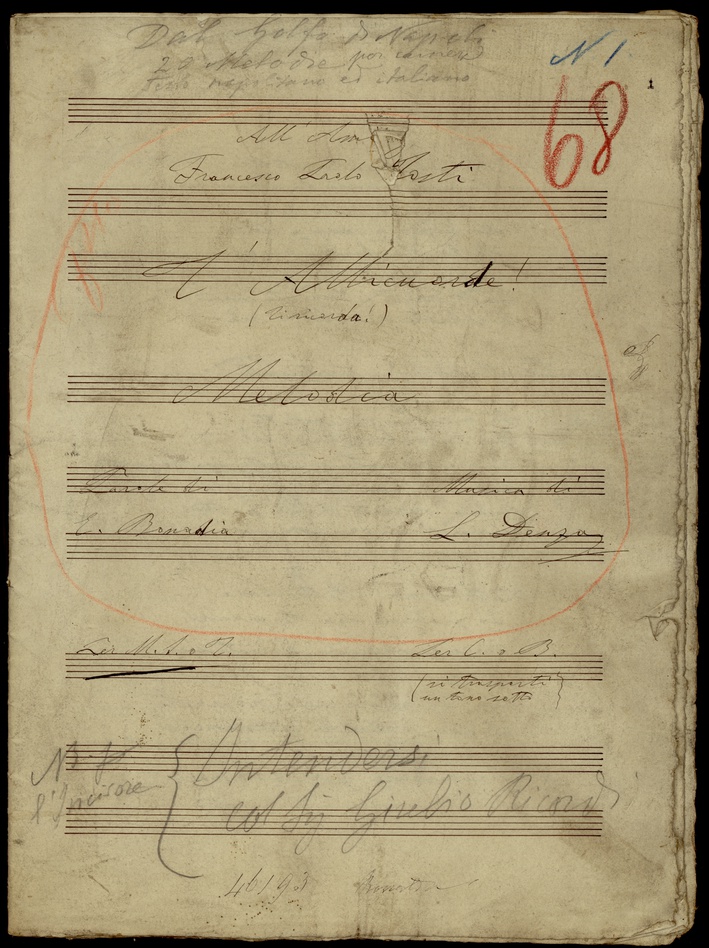 Dal Golfo di Napoli
22 Melodie per camera
Testo napolitano ed italiano
N 1
68
1
All'Am
Francesco Paolo Tosti
T'Allicuorde!
(ricorda!)
Melodia
Parole di
Musica di
E. Bonadia
L. Denza
Per M.S. o T.
Per C. o B.
(si trasporti
un tono sotto)
N.B. p
l'Incisore
Intendersi
col Sig Giulio Ricordi